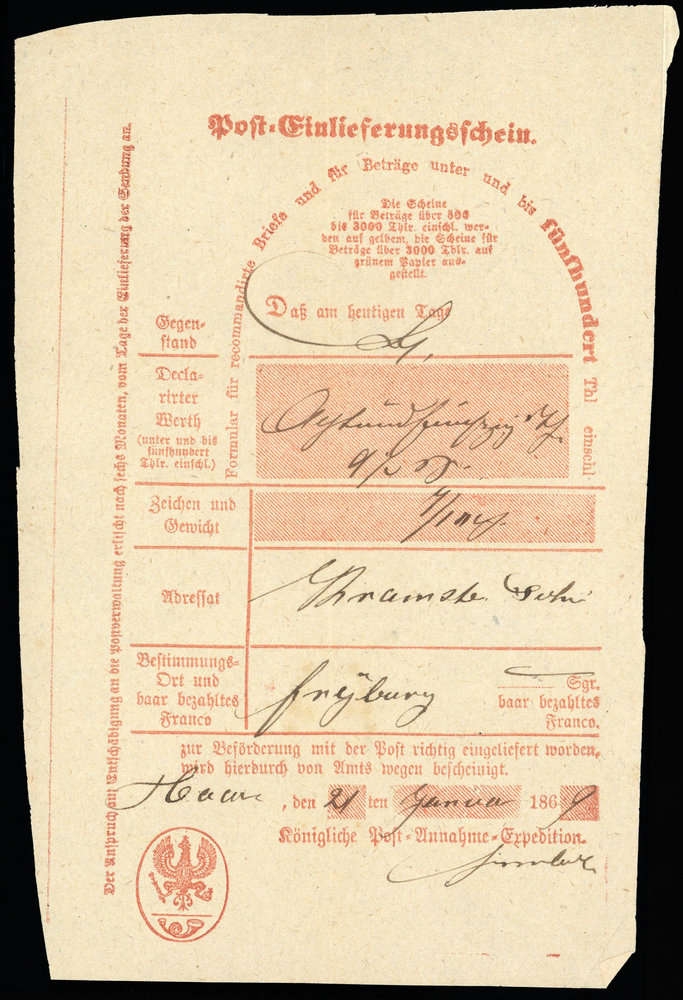 Post-Einlieferungsschein.
Formular für recommandirte Briefe und für Beträge unter und bis fünfhundert Thl einschl
Die Scheine
für Beträge über 500
bis 3000 Thlr. einschl. wer-
den auf gelbem, die Scheine für
Beträge über 3000 Thlr. auf
grünem Papier aus-
gestellt.
Daß am heutigen Tage
Gegen-
stand
Decla-
rirter
Werth
(unter und bis
fünfhundert
Thlr. einschl.)
Achtundfünfzig
Zeichen und
Gewicht
Adressat
Kramsta Sohn
Bestimmungs-
Ort und
baar bezahltes
Franco
freyburg
Sgr.
baar bezahltes
Franco.
zur Beförderung mit der Post richtig eingeliefert worden,
wird hierdurch von Amts wegen bescheinigt.
, den 21 ten Janua 1869
Königliche Post-Annahme-Expedition.
Der Anspruch auf Entschädigung an die Postverwaltung erlischt nach sechs Monaten, vom Tage der Einlieferung der Sendung an.